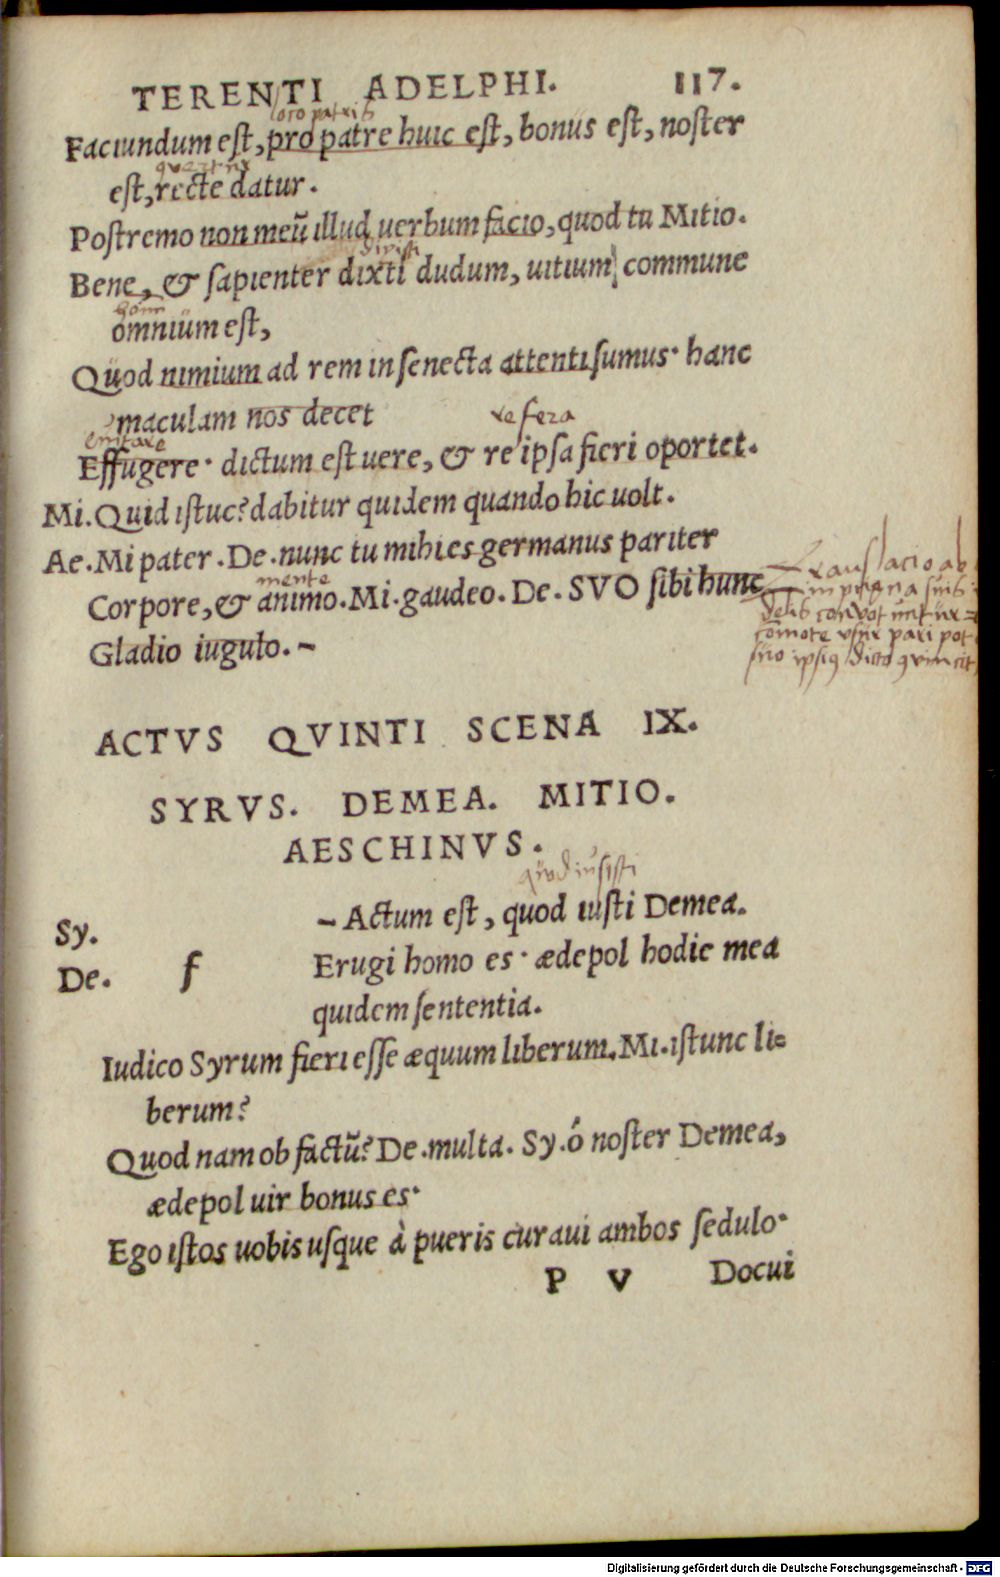 TERENTI ADELPHI. 117.
loco patris
Faciundum est, pro patre huic est, bonus est, noster
est, recte datur.
Postremo non meũ illud uerbum facio, quod tu Mitio.
dixisti
Bene, & sapienter dixti dudum, uitium commune
omnium est,
Quod nimium ad rem in senecta attenti sumus· hanc
maculam nos decet
euitare re fera
Effugere· dictum est uere, & re ipsa fieri oportet.
Mi. Quid istuc? dabitur quidem quando hic uolt.
Ae. Mi pater. De. nunc tu mihi es germanus pariter
mente
Corpore, & animo. Mi. gaudeo. De. SVO sibi hunc
Gladio iugulo. –
Translacio ab
in pugna suis
suo ipsius dicto
ACTVS QVINTI SCENA IX.
SYRVS. DEMEA. MITIO.
AESCHINVS.
quod iusisti
Sy. – Actum est, quod iusti Demea.
De. f Erugi homo es· ædepol hodie mea
quidem sententia.
Iudico Syrum fieri esse æquum liberum. Mi. istunc li=
berum?
Quod nam ob factũ? De. multa. Sy. ó noster Demea,
ædepol uir bonus es·
Ego istos uobis usque à pueris curaui ambos sedulo·
P V Docui
Digitalisierung gefördert durch die Deutsche Forschungsgemeinschaft - DFG